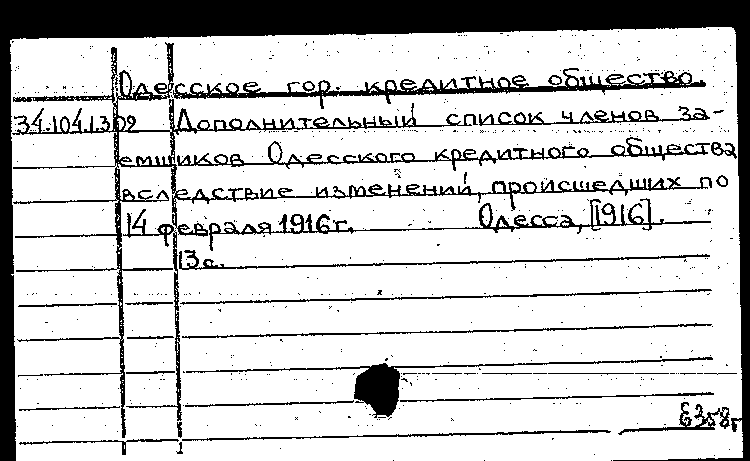 Одесское гор. кредитное общество.
34.104.1.302 Дополнительный список членов за-
емщиков Одесского кредитного общества
вследствие изменений, происшедших по
14 февраля 1916г. Одесса, [1916].
13 с.